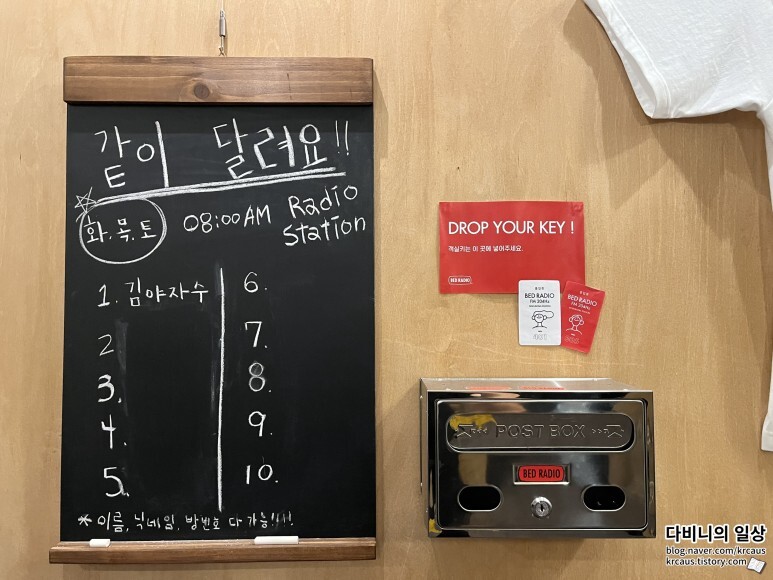 같이 달려요!!
화.목.토 08:00AM Radio Station
1. 김야자수
2
3.
4.
5.
6.
7.
8.
9.
10.
* 이름, 닉네임, 방번호 다 가능!!!!
DROP YOUR KEY !
객실키는 이 곳에 넣어주세요.
BED RADIO
BED RADIO
BED RADIO
POST BOX
BED RADIO
다비니의 일상
blog.naver.com/krcaus
krcaus.tistory.com